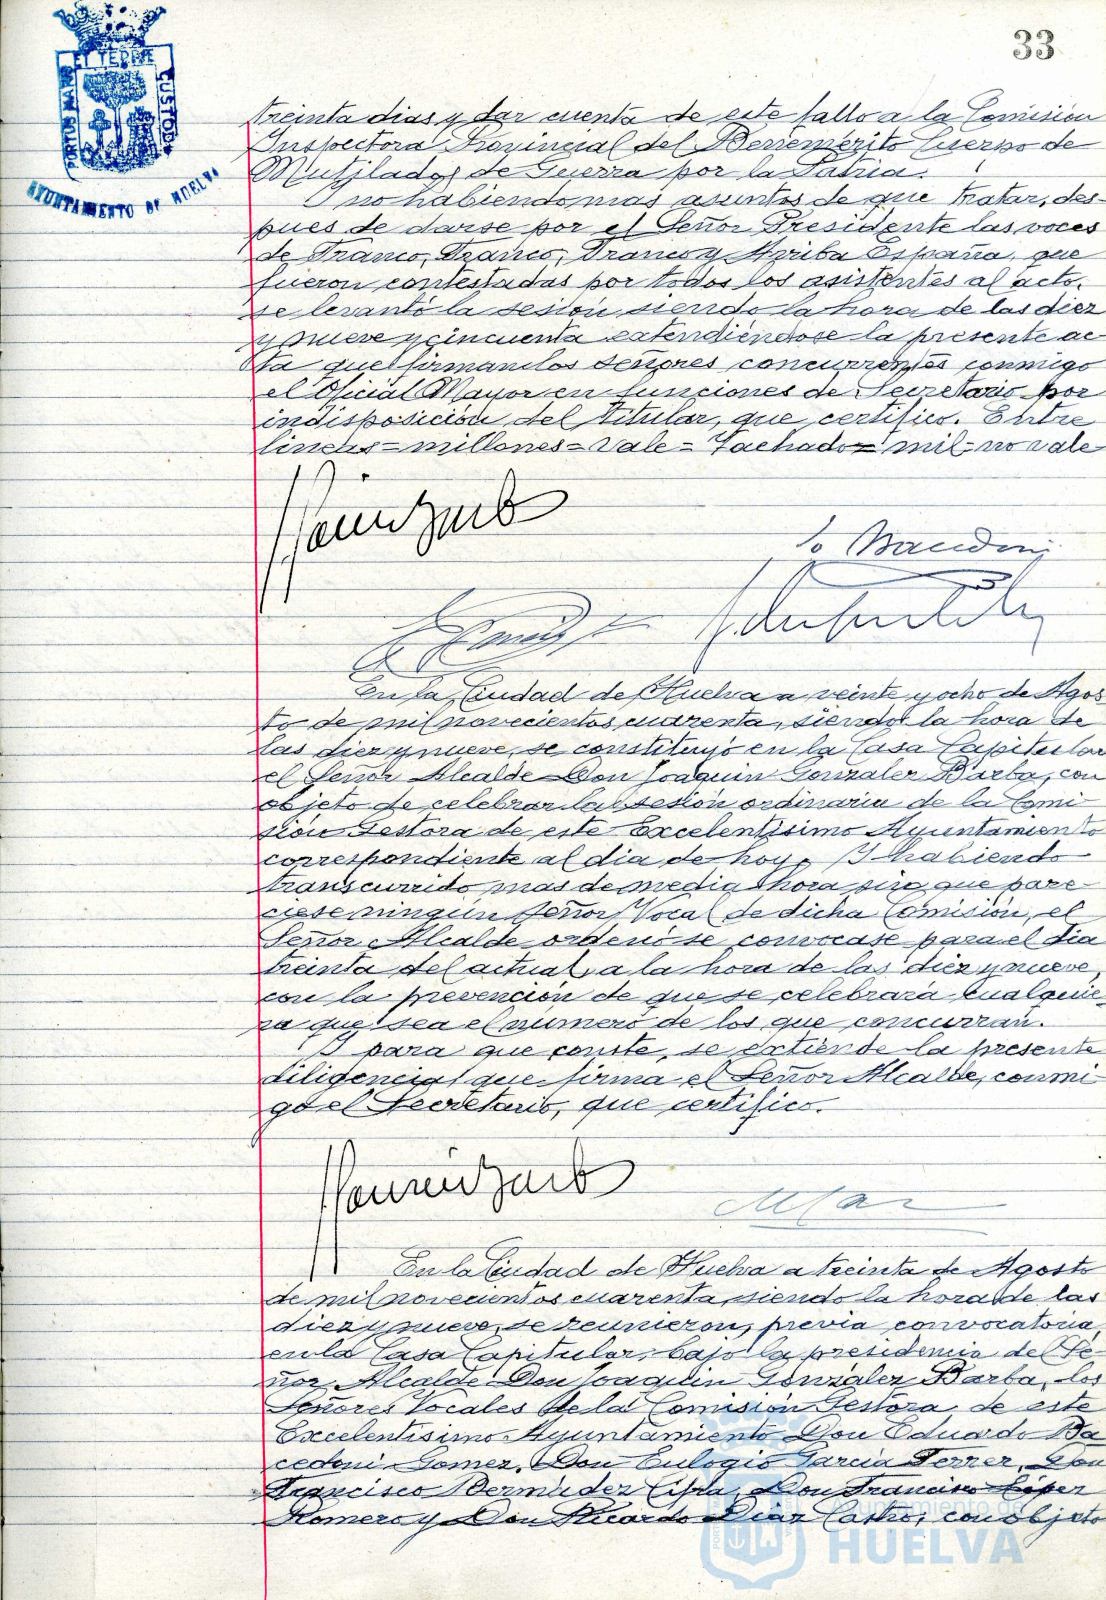 33
PORTUS MARIS ET TERRE CUSTODIA
AYUNTAMIENTO DE HUELVA
treinta dias y dar cuenta de este fallo a la Comisión
Inspectora Provincial del Benemérito Cuerpo de
Mutilados de Guerra por la Patria.
Y no habiendo mas asuntos de que tratar, des-
pues de darse por el Señor Presidente las voces
de Franco, Franco, Franco y Arriba España, que
fueron contestadas por todos los asistentes al acto,
se levantó la sesión siendo la hora de las diez
y nueve y cincuenta extendiéndose la presente ac-
ta que firman los señores concurrentes conmigo
el Oficial Mayor en funciones de Secretario por
indisposición del titular, que certifico. Entre
lineas = millones = vale = Tachado = mil = no vale
En la Ciudad de Huelva a veinte y ocho de Agos
to de mil novecientos cuarenta, siendo la hora de
las diez y nueve, se constituyó en la Casa Capitular
el Señor Alcalde Don Joaquin González Barba, con
objeto de celebrar la sesión ordinaria de la Comi
sión Gestora de este Excelentísimo Ayuntamiento
correspondiente al dia de hoy. Y habiendo
transcurrido mas de media hora sin que pare-
ciese ningún señor Vocal de dicha Comisión, el
Señor Alcalde ordenó se convocase para el dia
treinta del actual, a la hora de las diez y nueve,
con la prevención de que se celebrará cualquie-
ra que sea el número de los que concurran.
Y para que conste, se extiende la presente
diligencia que firma el Señor Alcalde, conmi
go el Secretario, que certifico.
En la Ciudad de Huelva a treinta de Agosto
de mil novecientos cuarenta, siendo la hora de las
diez y nueve, se reunieron, previa convocatoria,
en la Casa Capitular, bajo la presidencia del Se-
ñor Alcalde Don Joaquin González Barba, los
Señores Vocales de la Comisión Gestora de este
Excelentísimo Ayuntamiento Don Eduardo Ba
cedoni Gomez, Don Eulogio Garcia Ferrer, Don
Francisco Bermúdez Cifra, Don Francisco López
Romero y Don Ricardo Diaz Castro, con objeto
Ayuntamiento de
HUELVA